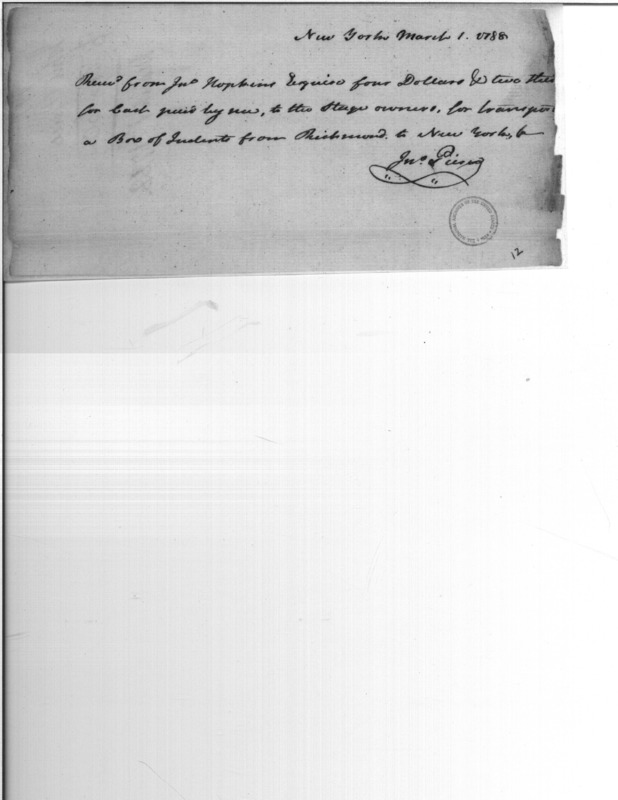 New York March 1. 1788
Recd from Jno Hopkins Esquire four Dollars & two thir
for Cash paid by me, to the Stage owners, for transport
a Box of Indents from Richmond to New York,
Jno. Pierce
12